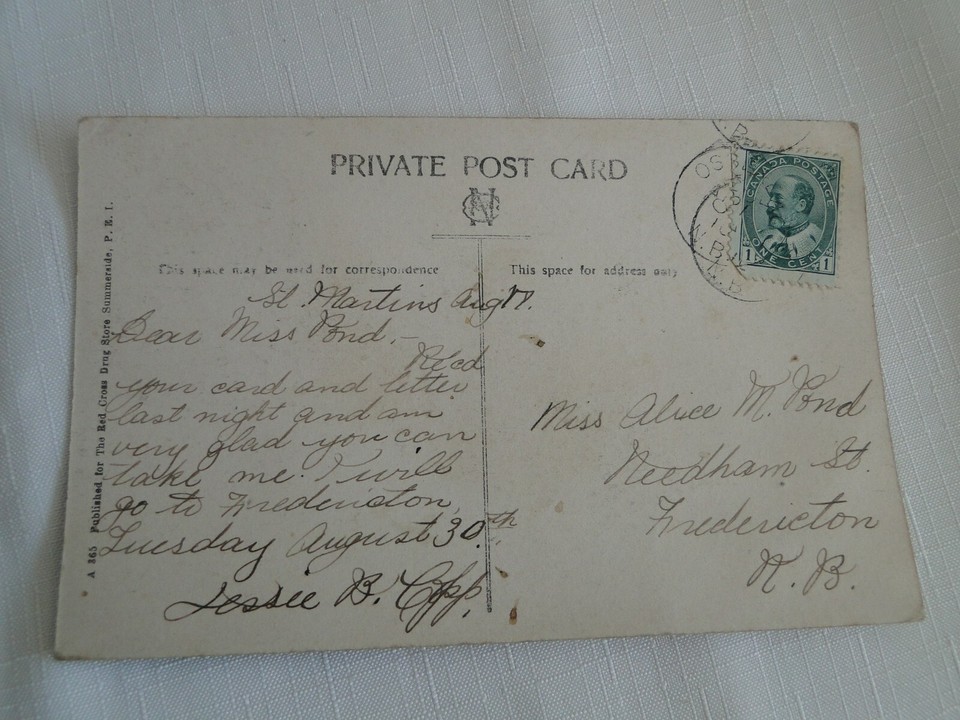 PRIVATE POST CARD
CANADA POSTAGE
1 ONE CENT 1
This space may be used for correspondence
This space for address only
A 365 Published for The Red Cross Drug Store Summerside, P. E. I.
St. Martins Aug 17.
Dear Miss Pond,—
Rec'd
your card and letter
last night and am
very glad you can
take me. I will
go to Fredericton,
Tuesday August 30th.
Jessie B. Copp.
Miss Alice M. Pond
Needham St.
Fredericton
N. B.